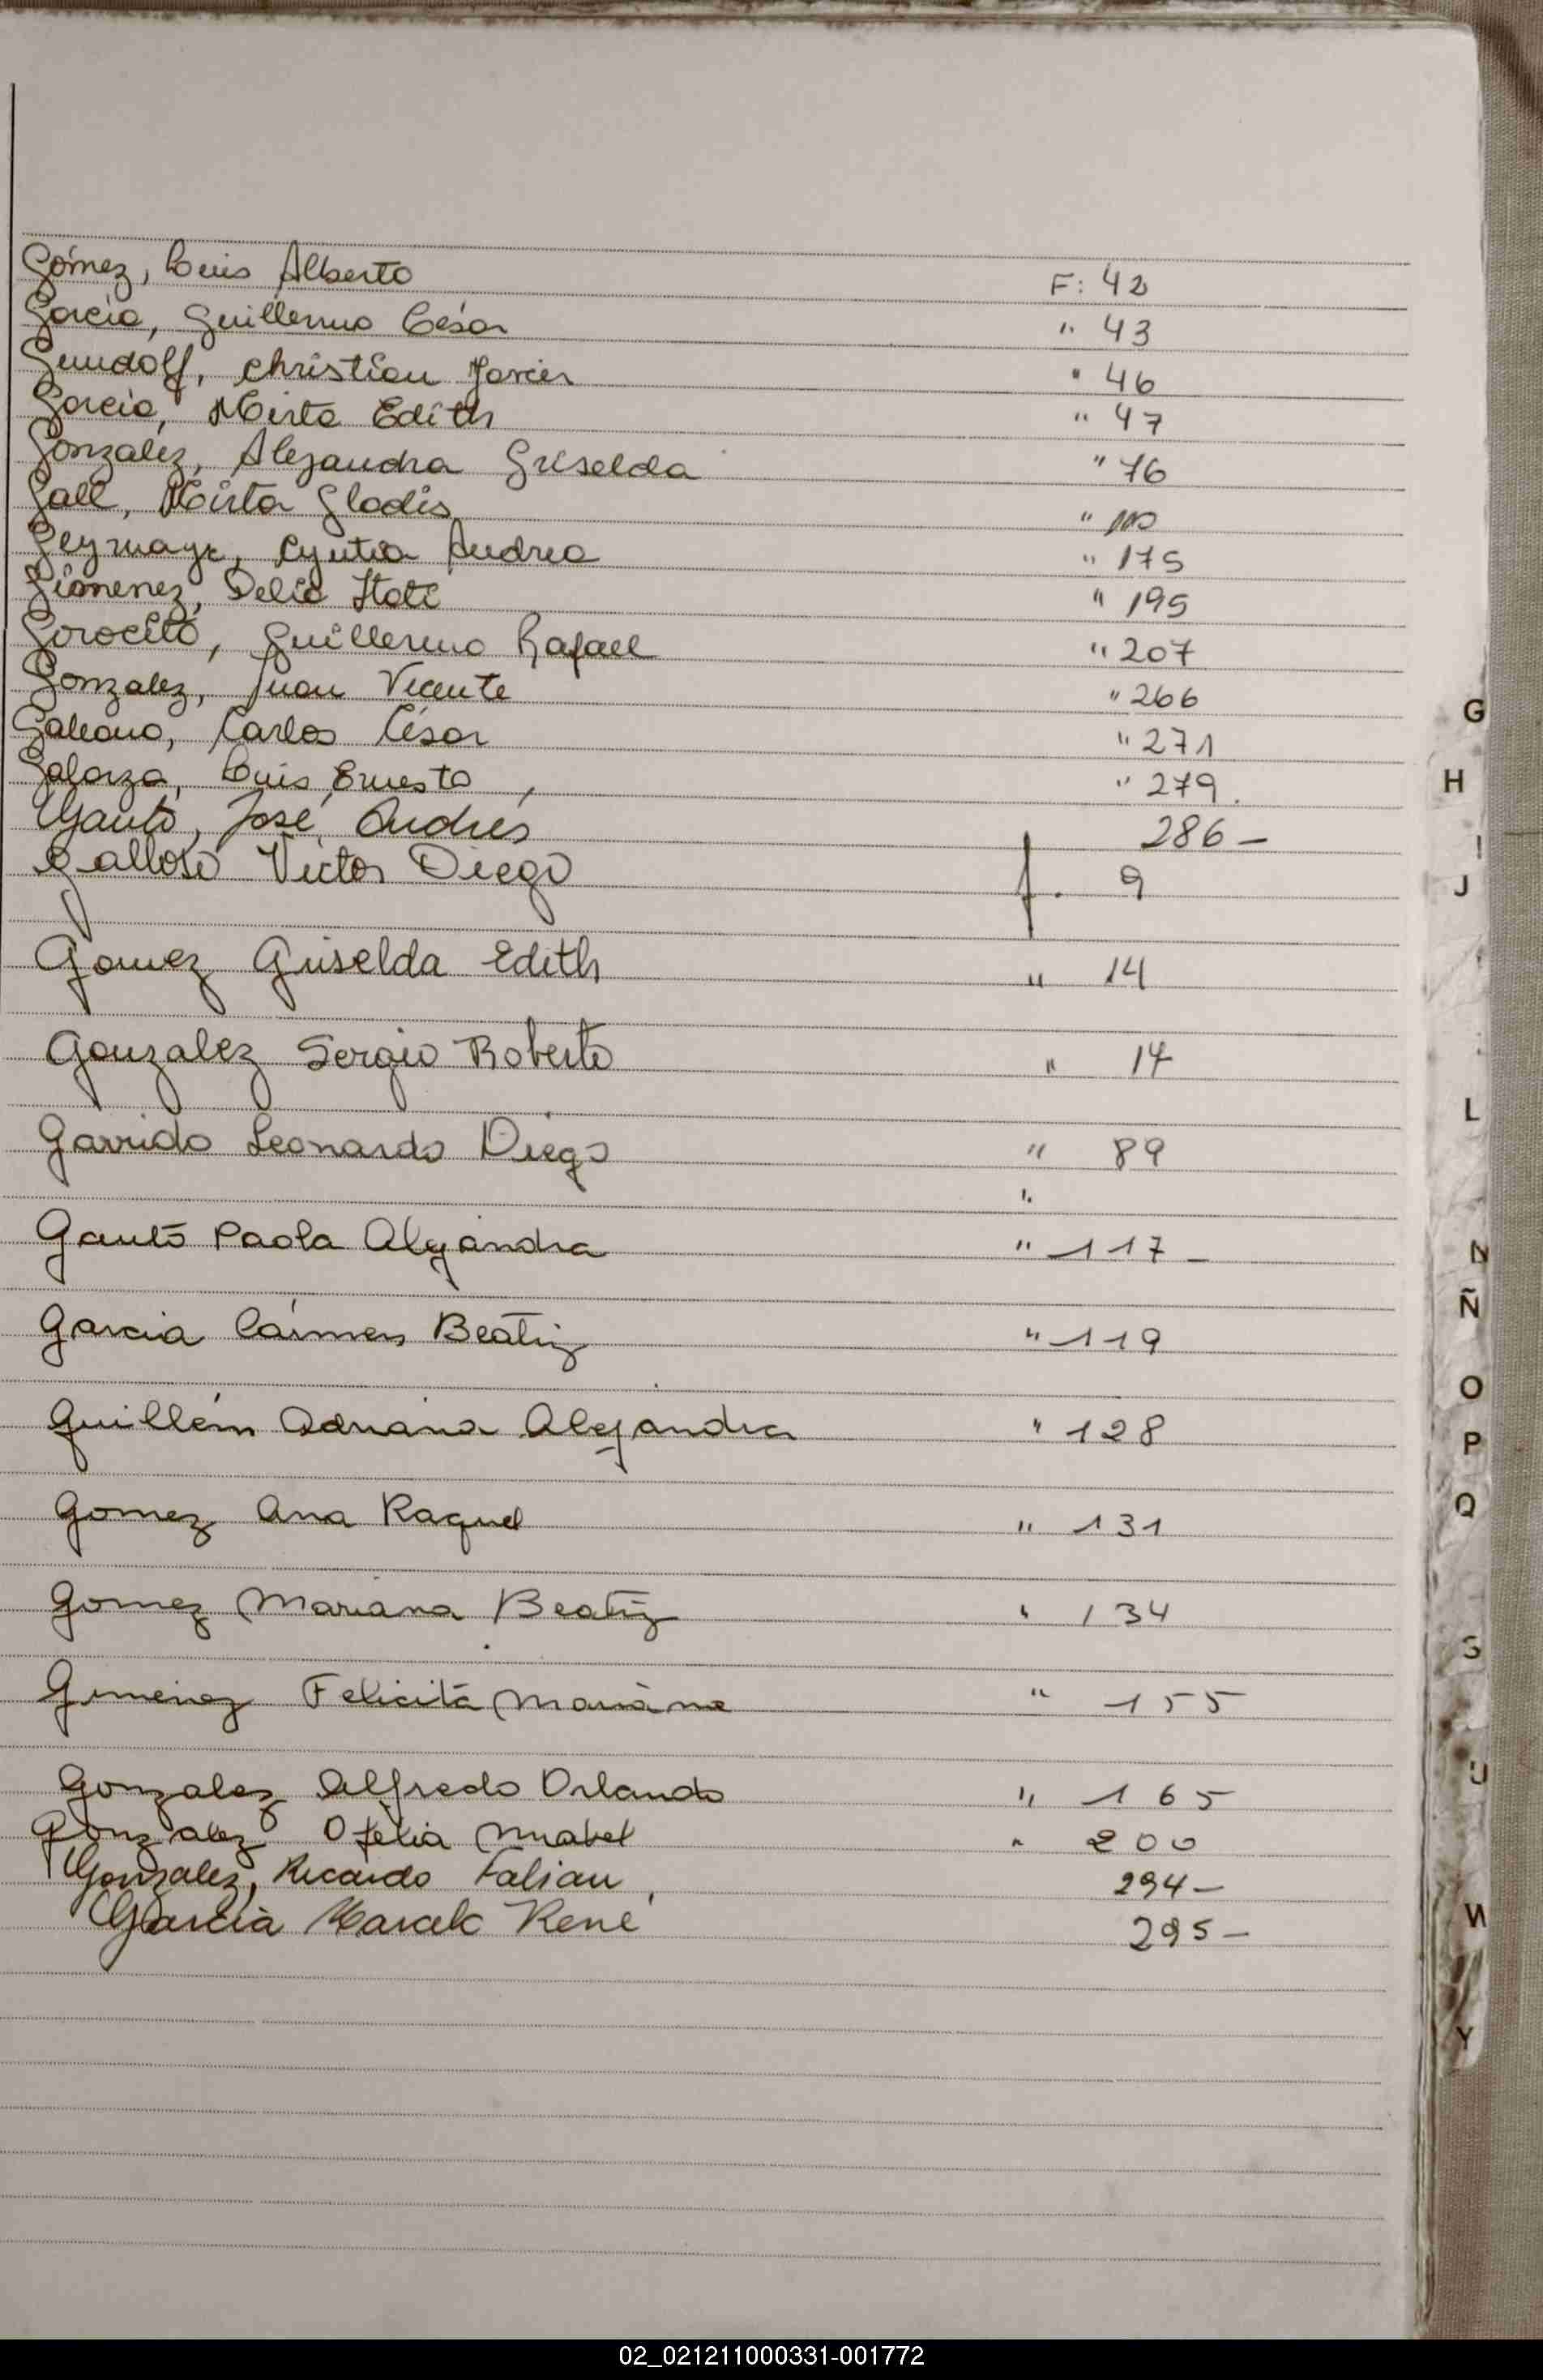 Gómez, Luis Alberto F: 42
García, Guillermo César " 43
Gundolf, Christian Javier " 46
García, Mirta Edith " 47
Gonzaléz, Alejandra Griselda " 76
Gall, Mirta Gladis "
Geymayr, Cyntia Andrea " 175
Gimenez, Delia Itatí " 195
Gorocito, Guillermo Rafael " 207
Gonzalez, Juan Vicente " 266
G
Galeano, Carlos César " 271
Galarza, Luis Ernesto " 279.
H
Gauto, José Andrés 286 -
I
Galloso Victor Diego f. 9
J
Gomez Griselda Edith " 14
Gonzalez Sergio Roberto " 14
L
Garrido Leonardo Diego " 89
"
Gauto Paola Alejandra " 117 -
N
Ñ
Garcia Cármen Beatriz " 119
O
Guillém Adriana Alejandra " 128
P
Q
Gomez Ana Raquel " 131
Gomez Mariana Beatriz " 134
S
Gimenez Felicita Mariana " 155
U
Gonzalez Alfredo Orlando " 165
Gonzalez Ofelia Mabel " 200
Gonzalez, Ricardo Fabian 294 -
W
García René 295 -
Y
02_021211000331-001772